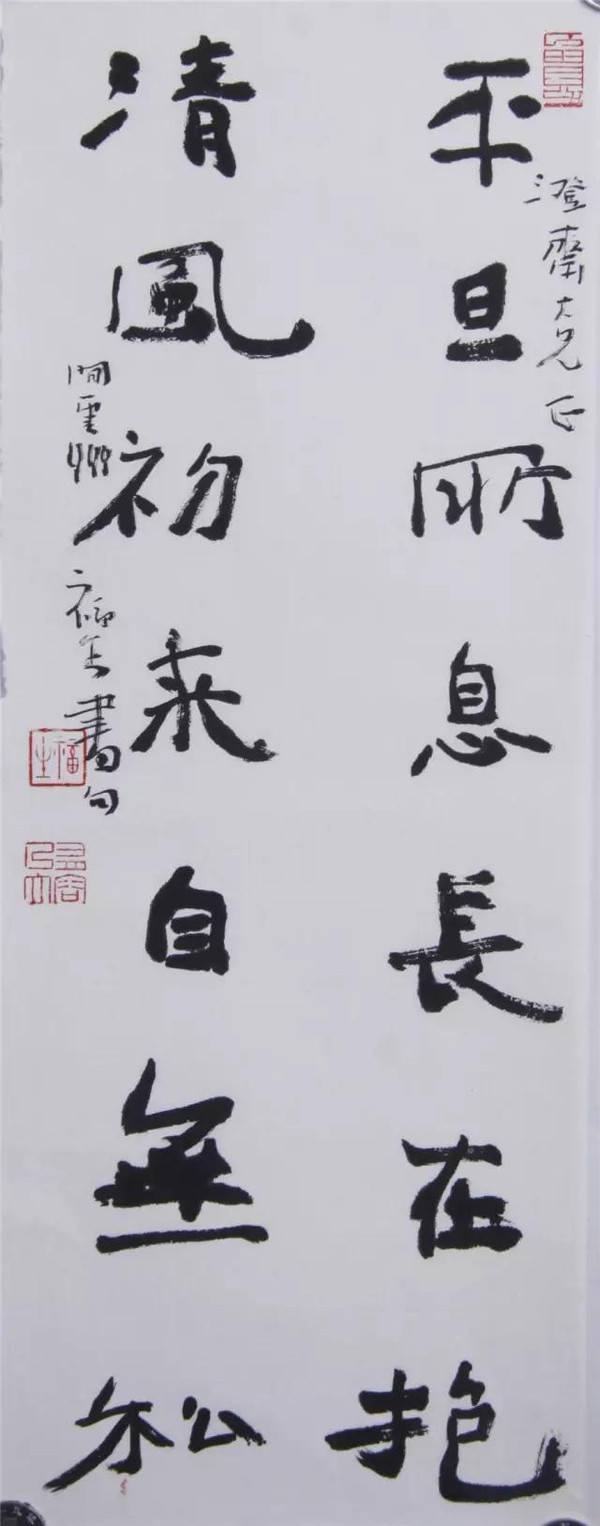 澄齋大兄正
平旦所息長在抱
清風初来自無私
福生書句
福生